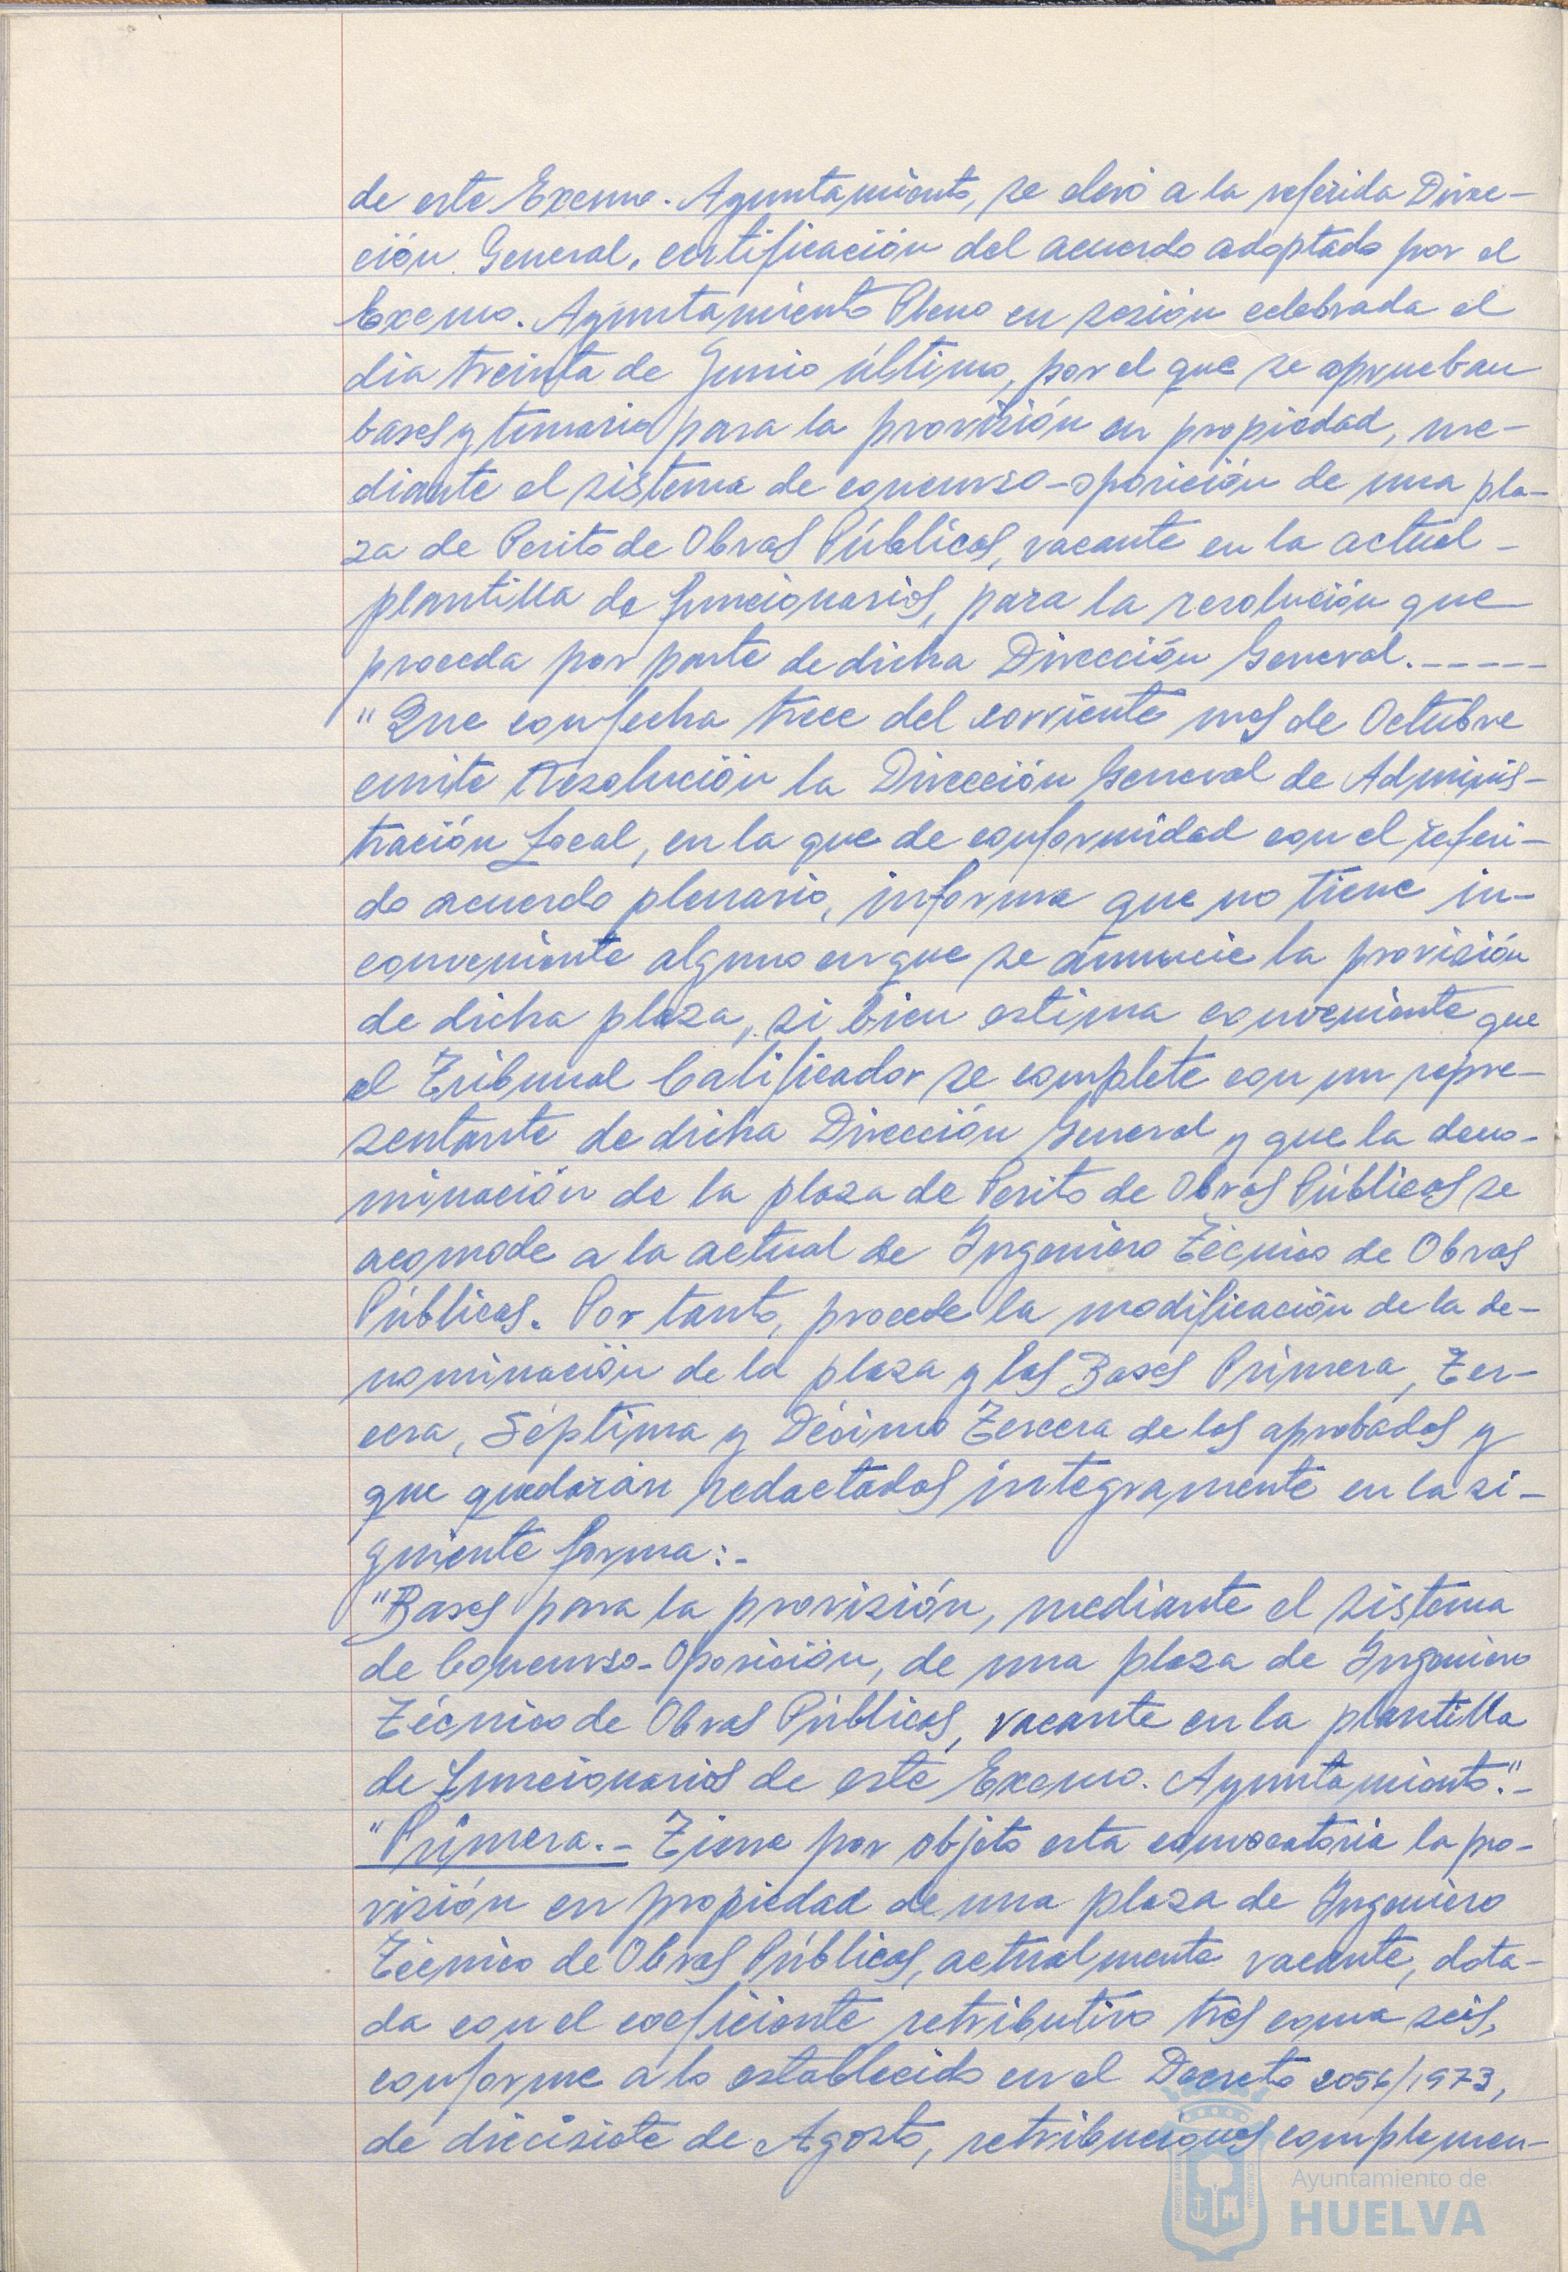 de este Excmo. Ayuntamiento, se elevó a la referida Direc-
ción General, certificación del acuerdo adoptado por el
Excmo. Ayuntamiento Pleno en sesión celebrada el
dia treinta de Junio último, por el que se aprueban
bases y temario para la provisión en propiedad, me-
diante el sistema de concurso-oposición de una pla-
za de Perito de Obras Públicas, vacante en la actual -
plantilla de funcionarios, para la resolución que
proceda por parte de dicha Dirección General.-----
"Que con fecha trece del corriente mes de Octubre
emite Resolución la Dirección General de Adminis-
tración Local, en la que de conformidad con el referi-
do acuerdo plenario, informa que no tiene in-
conveniente alguno en que se anuncie la provisión
de dicha plaza, si bien estima conveniente que
el Tribunal Calificador se complete con un repre-
sentante de dicha Dirección General y que la deno-
minación de la plaza de Perito de Obras Públicas se
acomode a la actual de Ingeniero Técnico de Obras
Públicas. Por tanto, procede la modificación de la de-
nominación de la plaza y las Bases Primera, Ter-
cera, Séptima y Décimo Tercera de las aprobadas y
que quedarán redactadas integramente en la si-
guiente forma:-
"Bases para la provisión, mediante el sistema
de Concurso-Oposición, de una plaza de Ingeniero
Técnico de Obras Públicas, vacante en la plantilla
de Funcionarios de este Excmo. Ayuntamiento."-
"Primera.- Tiene por objeto esta convocatoria la pro-
visión en propiedad de una plaza de Ingeniero
Técnico de Obras Públicas, actualmente vacante, dota-
da con el coeficiente retributivo tres coma seis,
conforme a lo establecido en el Decreto 2056/1973,
de diecisiete de Agosto, retribuciones complemen-
Ayuntamiento de
HUELVA